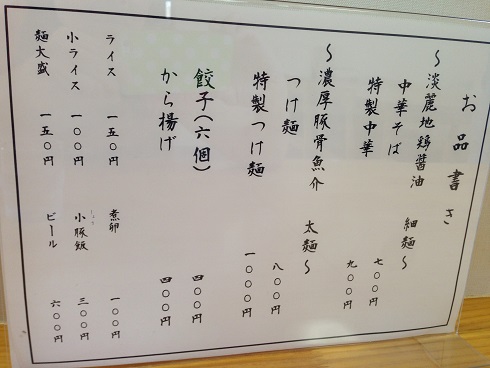 お品書き
〜淡麗地鶏醤油 細麺〜
中華そば 七〇〇円
特製中華 九〇〇円
〜濃厚豚骨魚介 太麺〜
つけ麺 八〇〇円
特製つけ麺 一〇〇〇円
餃子(六個) 四〇〇円
から揚げ 四〇〇円
ライス 一五〇円
煮卵 一〇〇円
小ライス 一〇〇円
小豚飯 三〇〇円
麺大盛 一五〇円
ビール 六〇〇円